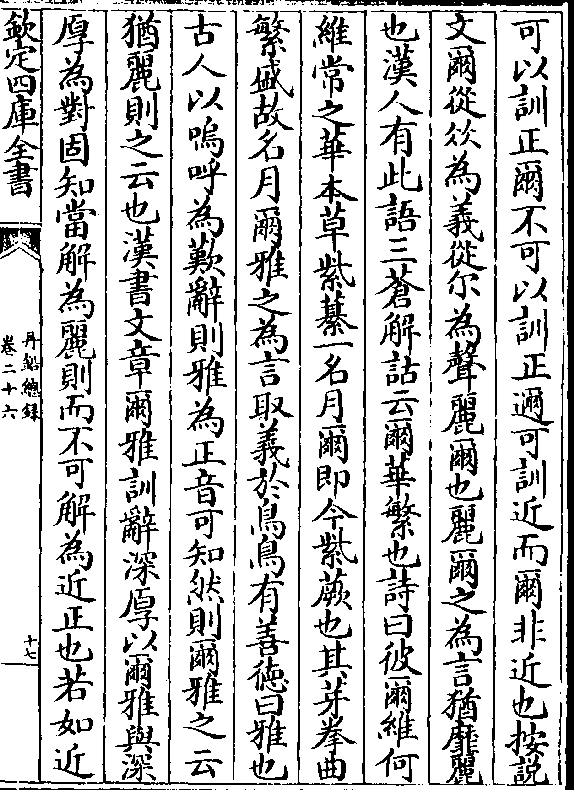 可以訓正爾不可以訓正邇可訓近而爾非近也按説
文爾從㸚為義從尒為聲麗爾也麗爾之為言猶靡麗
也漢人有此語三蒼解詁云爾華繁也詩曰彼爾維何
維常之華本草紫蕨一名月爾即今紫蕨也其芽拳曲
繁盛故名月爾雅之為言取義於鳥鳥有善德曰雅也
古人以嗚呼為歎辭則雅為正音可知然則爾雅之云
猶麗則之云也漢書文章爾雅訓辭深厚以爾雅與深
厚為對固知當解為麗則而不可解為近正也若如近
欽定四庫全書
丹鉛總録
卷二十六
十七